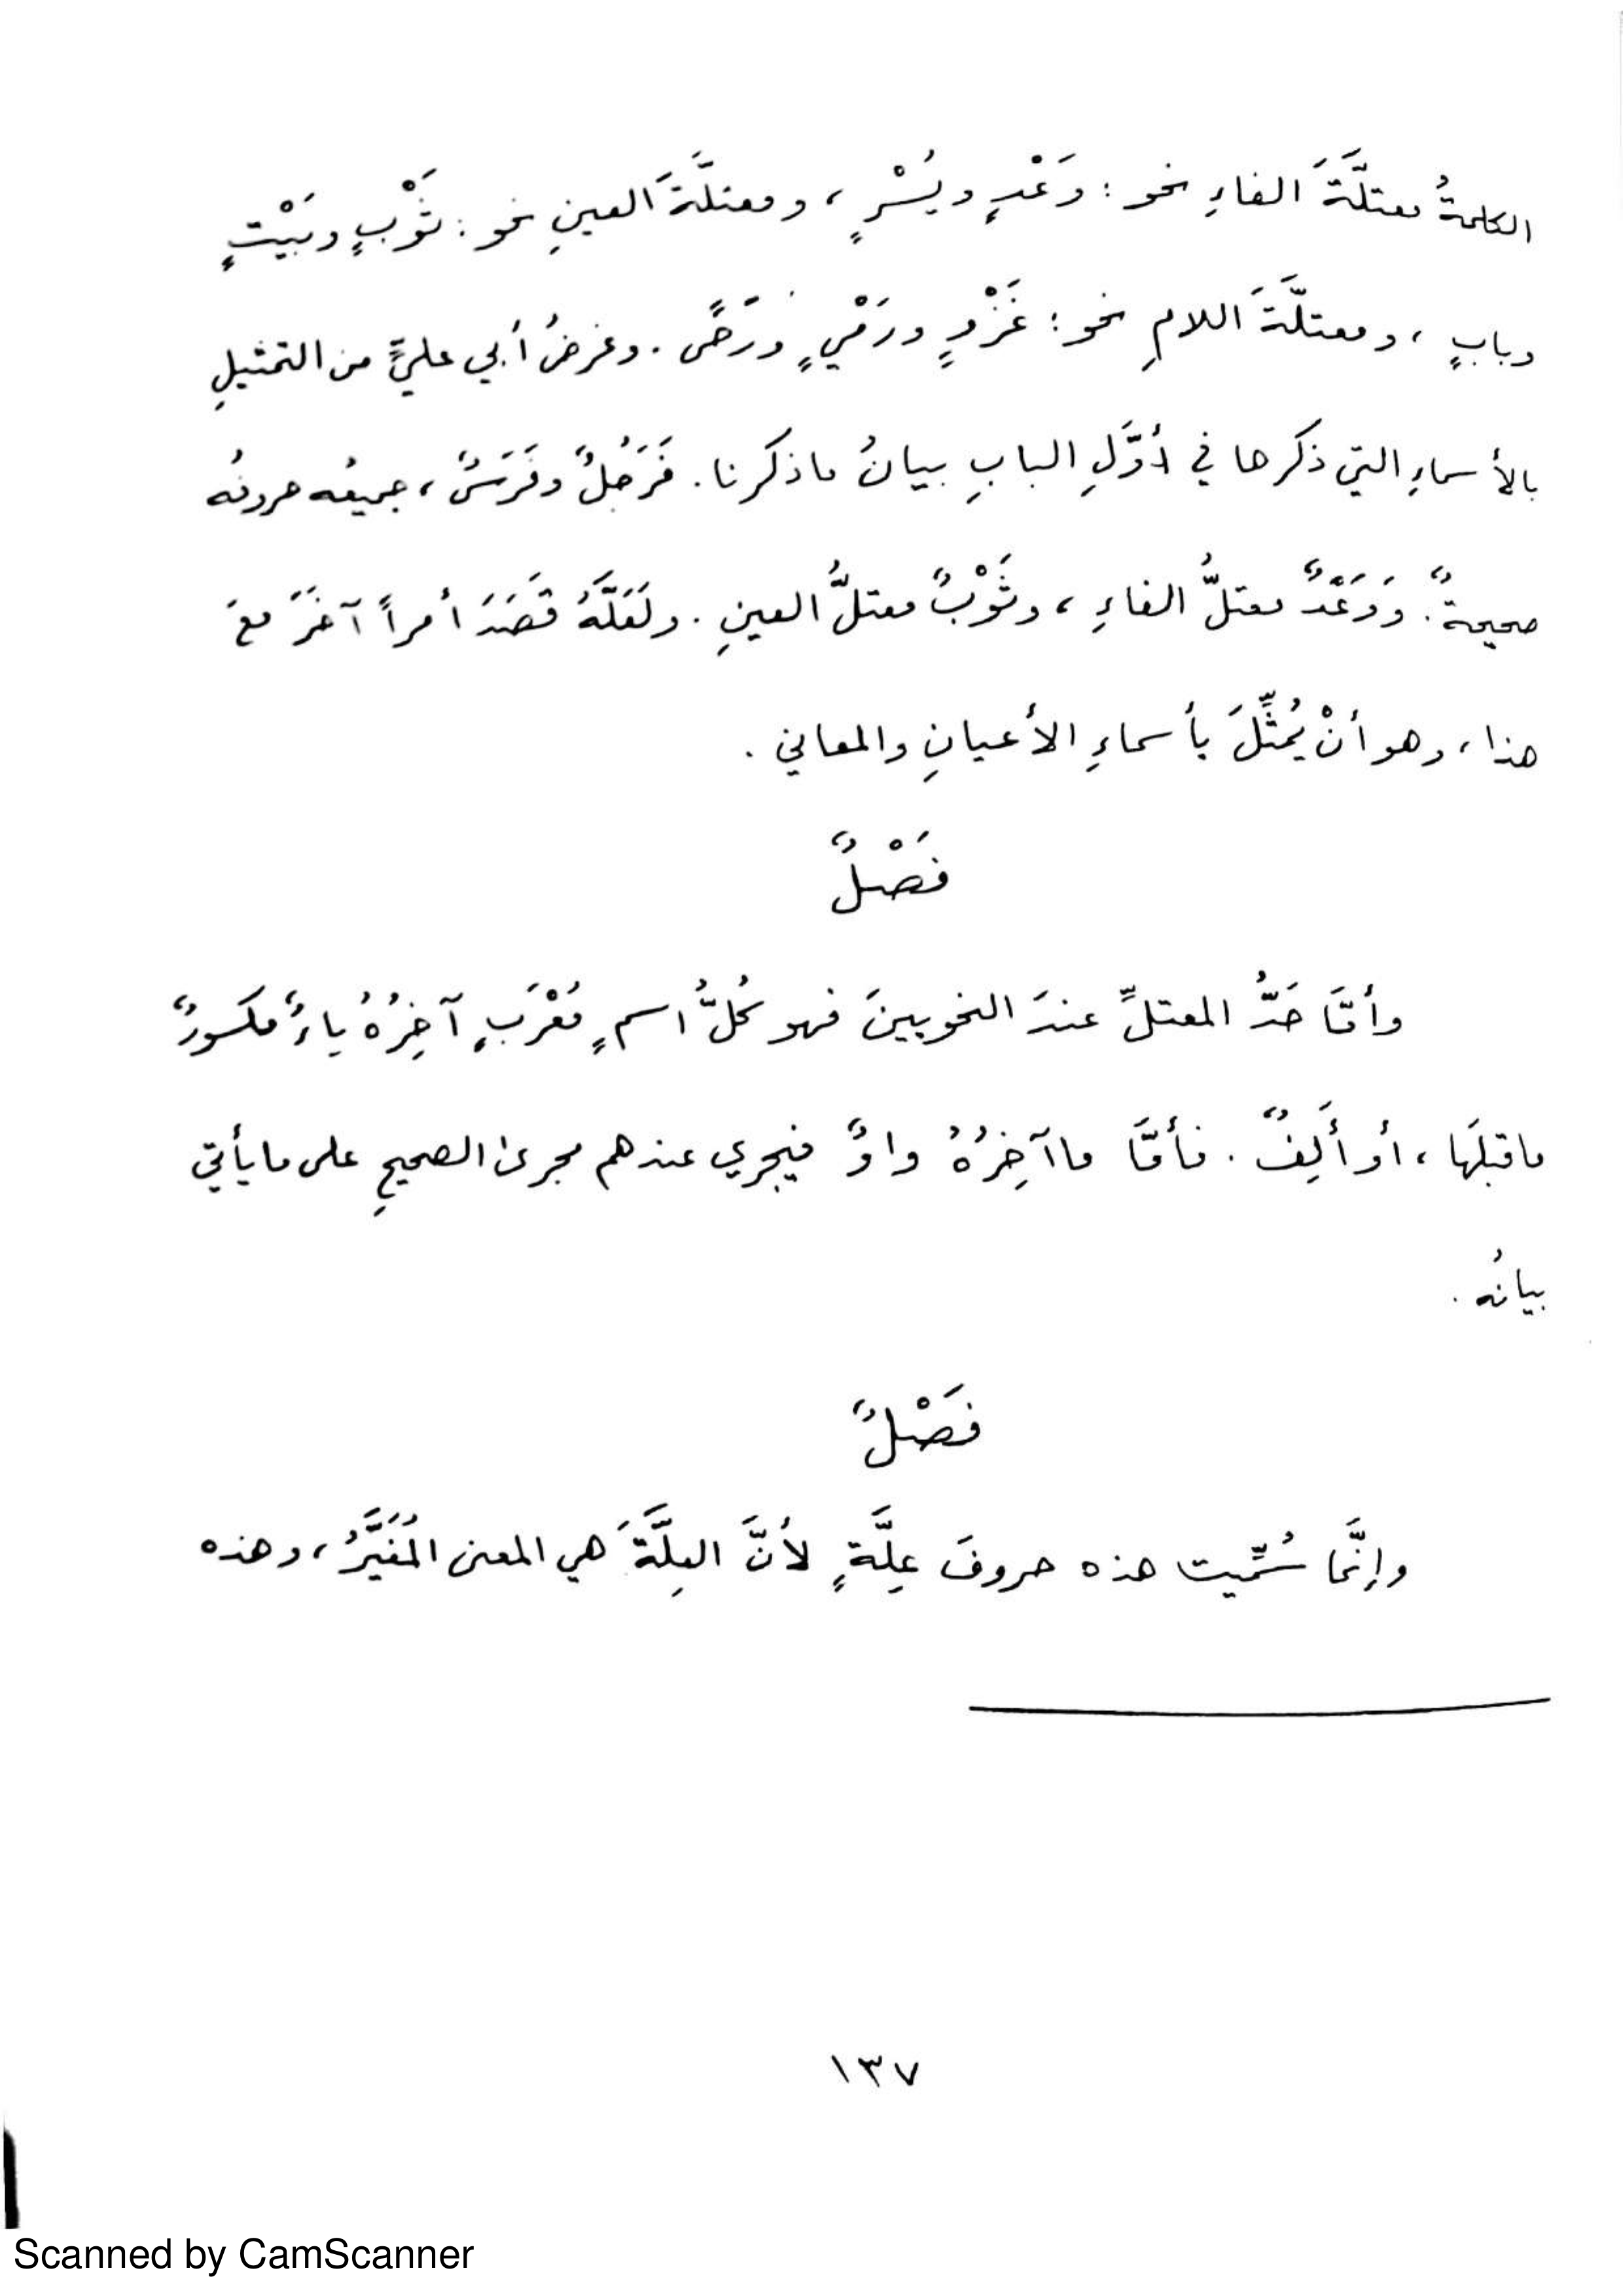 الكلمةُ معتلَّةَ الفاءِ نحو : وَعْدٍ ويُسْرٍ ، ومعتلَّةَ العينِ نحو : ثَوْبٍ وبَيْتٍ
وبابٍ ، ومعتلَّةَ اللامِ نحو : غَزْوٍ ورَمْيٍ ورَحًى . وغرضُ أبي عليٍّ من التمثيلِ
بالأسماءِ التي ذكرها في أوَّلِ البابِ بيانُ ما ذكرنا . فَرَجُلٌ وفَرَسٌ ، جميعُه حروفُه
صحيحةٌ . وَوَعْدٌ معتلُّ الفاءِ ، وثَوْبٌ معتلُّ العينِ . ولَعَلَّهُ قَصَدَ أمراً آخَرَ معَ
هذا ، وهو أنْ يُمَثِّلَ بأسماءِ الأعيانِ والمعاني .
فَصْلٌ
وأمَّا حَدُّ المعتلِّ عندَ النحويينَ فهو كلُّ اسمٍ مُعْرَبٍ آخِرُهُ ياءٌ مكسورٌ
ما قبلَها ، أو أَلِفٌ . فأمَّا ما آخِرُهُ واوٌ فيجري عندهم مجرى الصحيحِ على ما يأتي
بيانُه .
فَصْلٌ
وإنَّما سُمِّيت هذه حروفَ عِلَّةٍ لأنَّ العِلَّةَ هي المعنى المُغَيِّرُ ، وهذه
١٣٧
Scanned by CamScanner